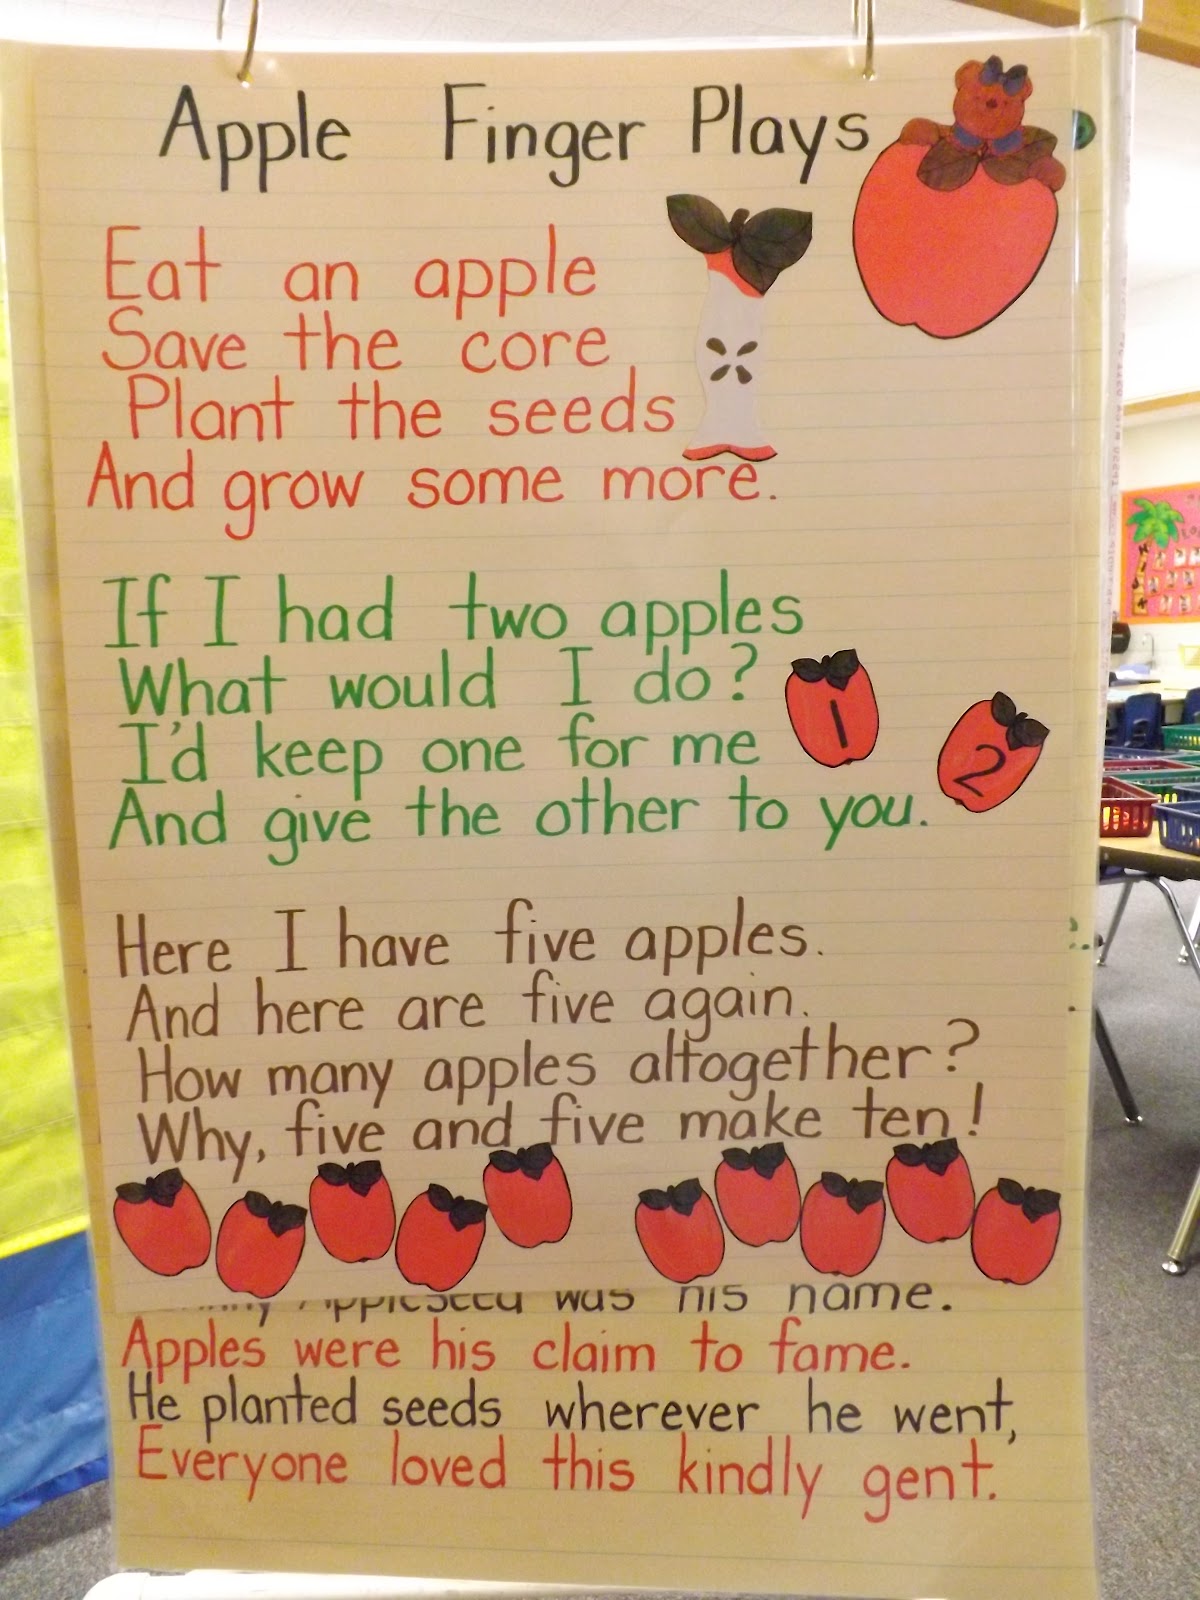 Apple Finger Plays
Eat an apple
Save the core
Plant the seeds
And grow some more.
If I had two apples
What would I do?
I'd keep one for me
And give the other to you.
1
2
Here I have five apples.
And here are five again.
How many apples altogether?
Why, five and five make ten!
Appleseed was his name.
Apples were his claim to fame.
He planted seeds wherever he went,
Everyone loved this kindly gent.